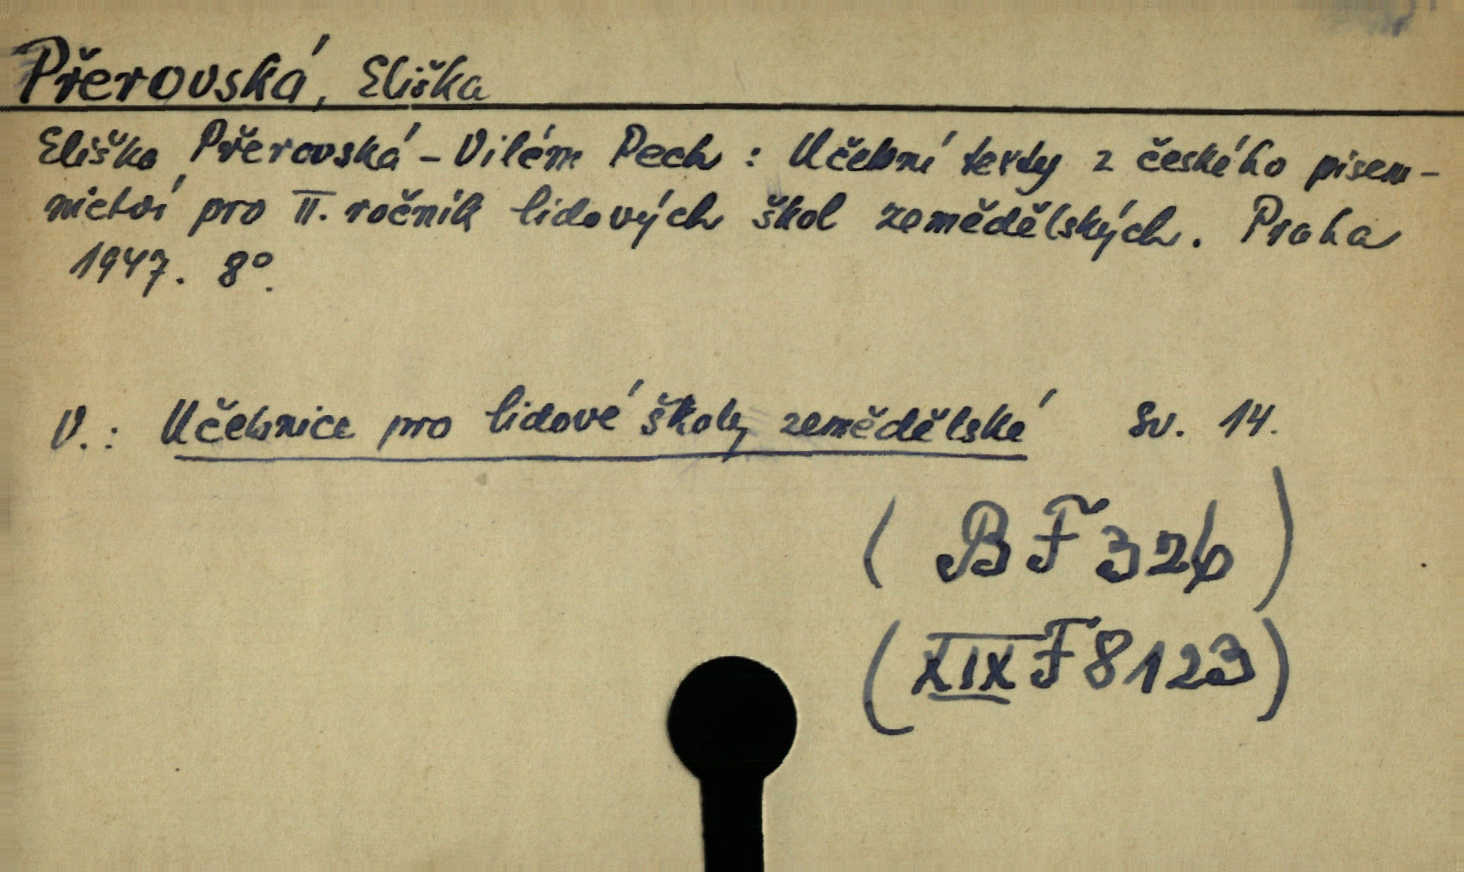 Přerovská, Eliška
Eliška Přerovská - Vilém Pech : Učební texty z českého písem-
nictví pro II. ročník lidových škol zemědělských. Praha
1947. 8°.
V.: Učebnice pro lidové školy zemědělské Sv. 14.
( BF 326 )
( XIX F 8123 )